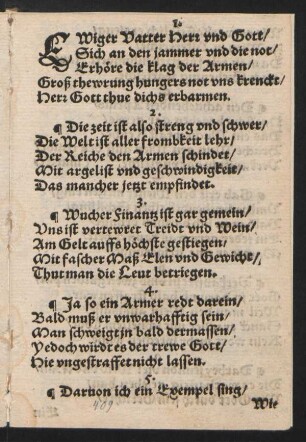 1.
EWiger Vatter Herr vnd Gott/
Sich an den jammer vnd die not/
Erhöre die klag der Armen/
Groß thewrung hungers not vns krenckt/
Herr Gott thue dichs erbarmen.
2.
¶ Die zeit ist also streng vnd schwer/
Die Welt ist aller frombkeit lehr/
Der Reiche den Armen schindet/
Mit argelist vnd geschwindigkeit/
Das mancher jetzt empfindet.
3.
¶ Wucher Finantz ist gar gemein/
Vns ist vertewret Treidt vnd Wein/
Am Gelt auffs höchste gestiegen/
Mit falscher Maß Elen vnd Gewicht/
Thut man die Leut betriegen.
4.
¶ Ja so ein Armer redt darein/
Bald muß er vnwarhafftig sein/
Man schweigt jn bald dermassen/
Yedoch wirdt es der trewe Gott/
Nie vngestraffet nicht lassen.
5.
¶ Daruon ich ein Exempel sing/
Wie